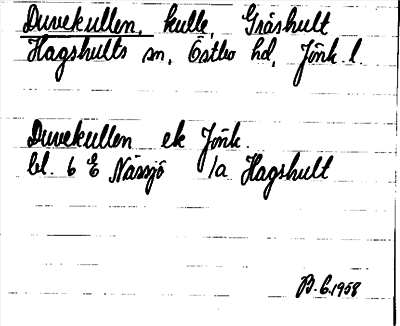 Duvekullen, kulle, Gräshult
Hagshults sn, Östbo hd, Jönk. l.
Duvekullen ek Jönk.
bl. 6 E Nässjö 1a Hagshult
B.E.1958